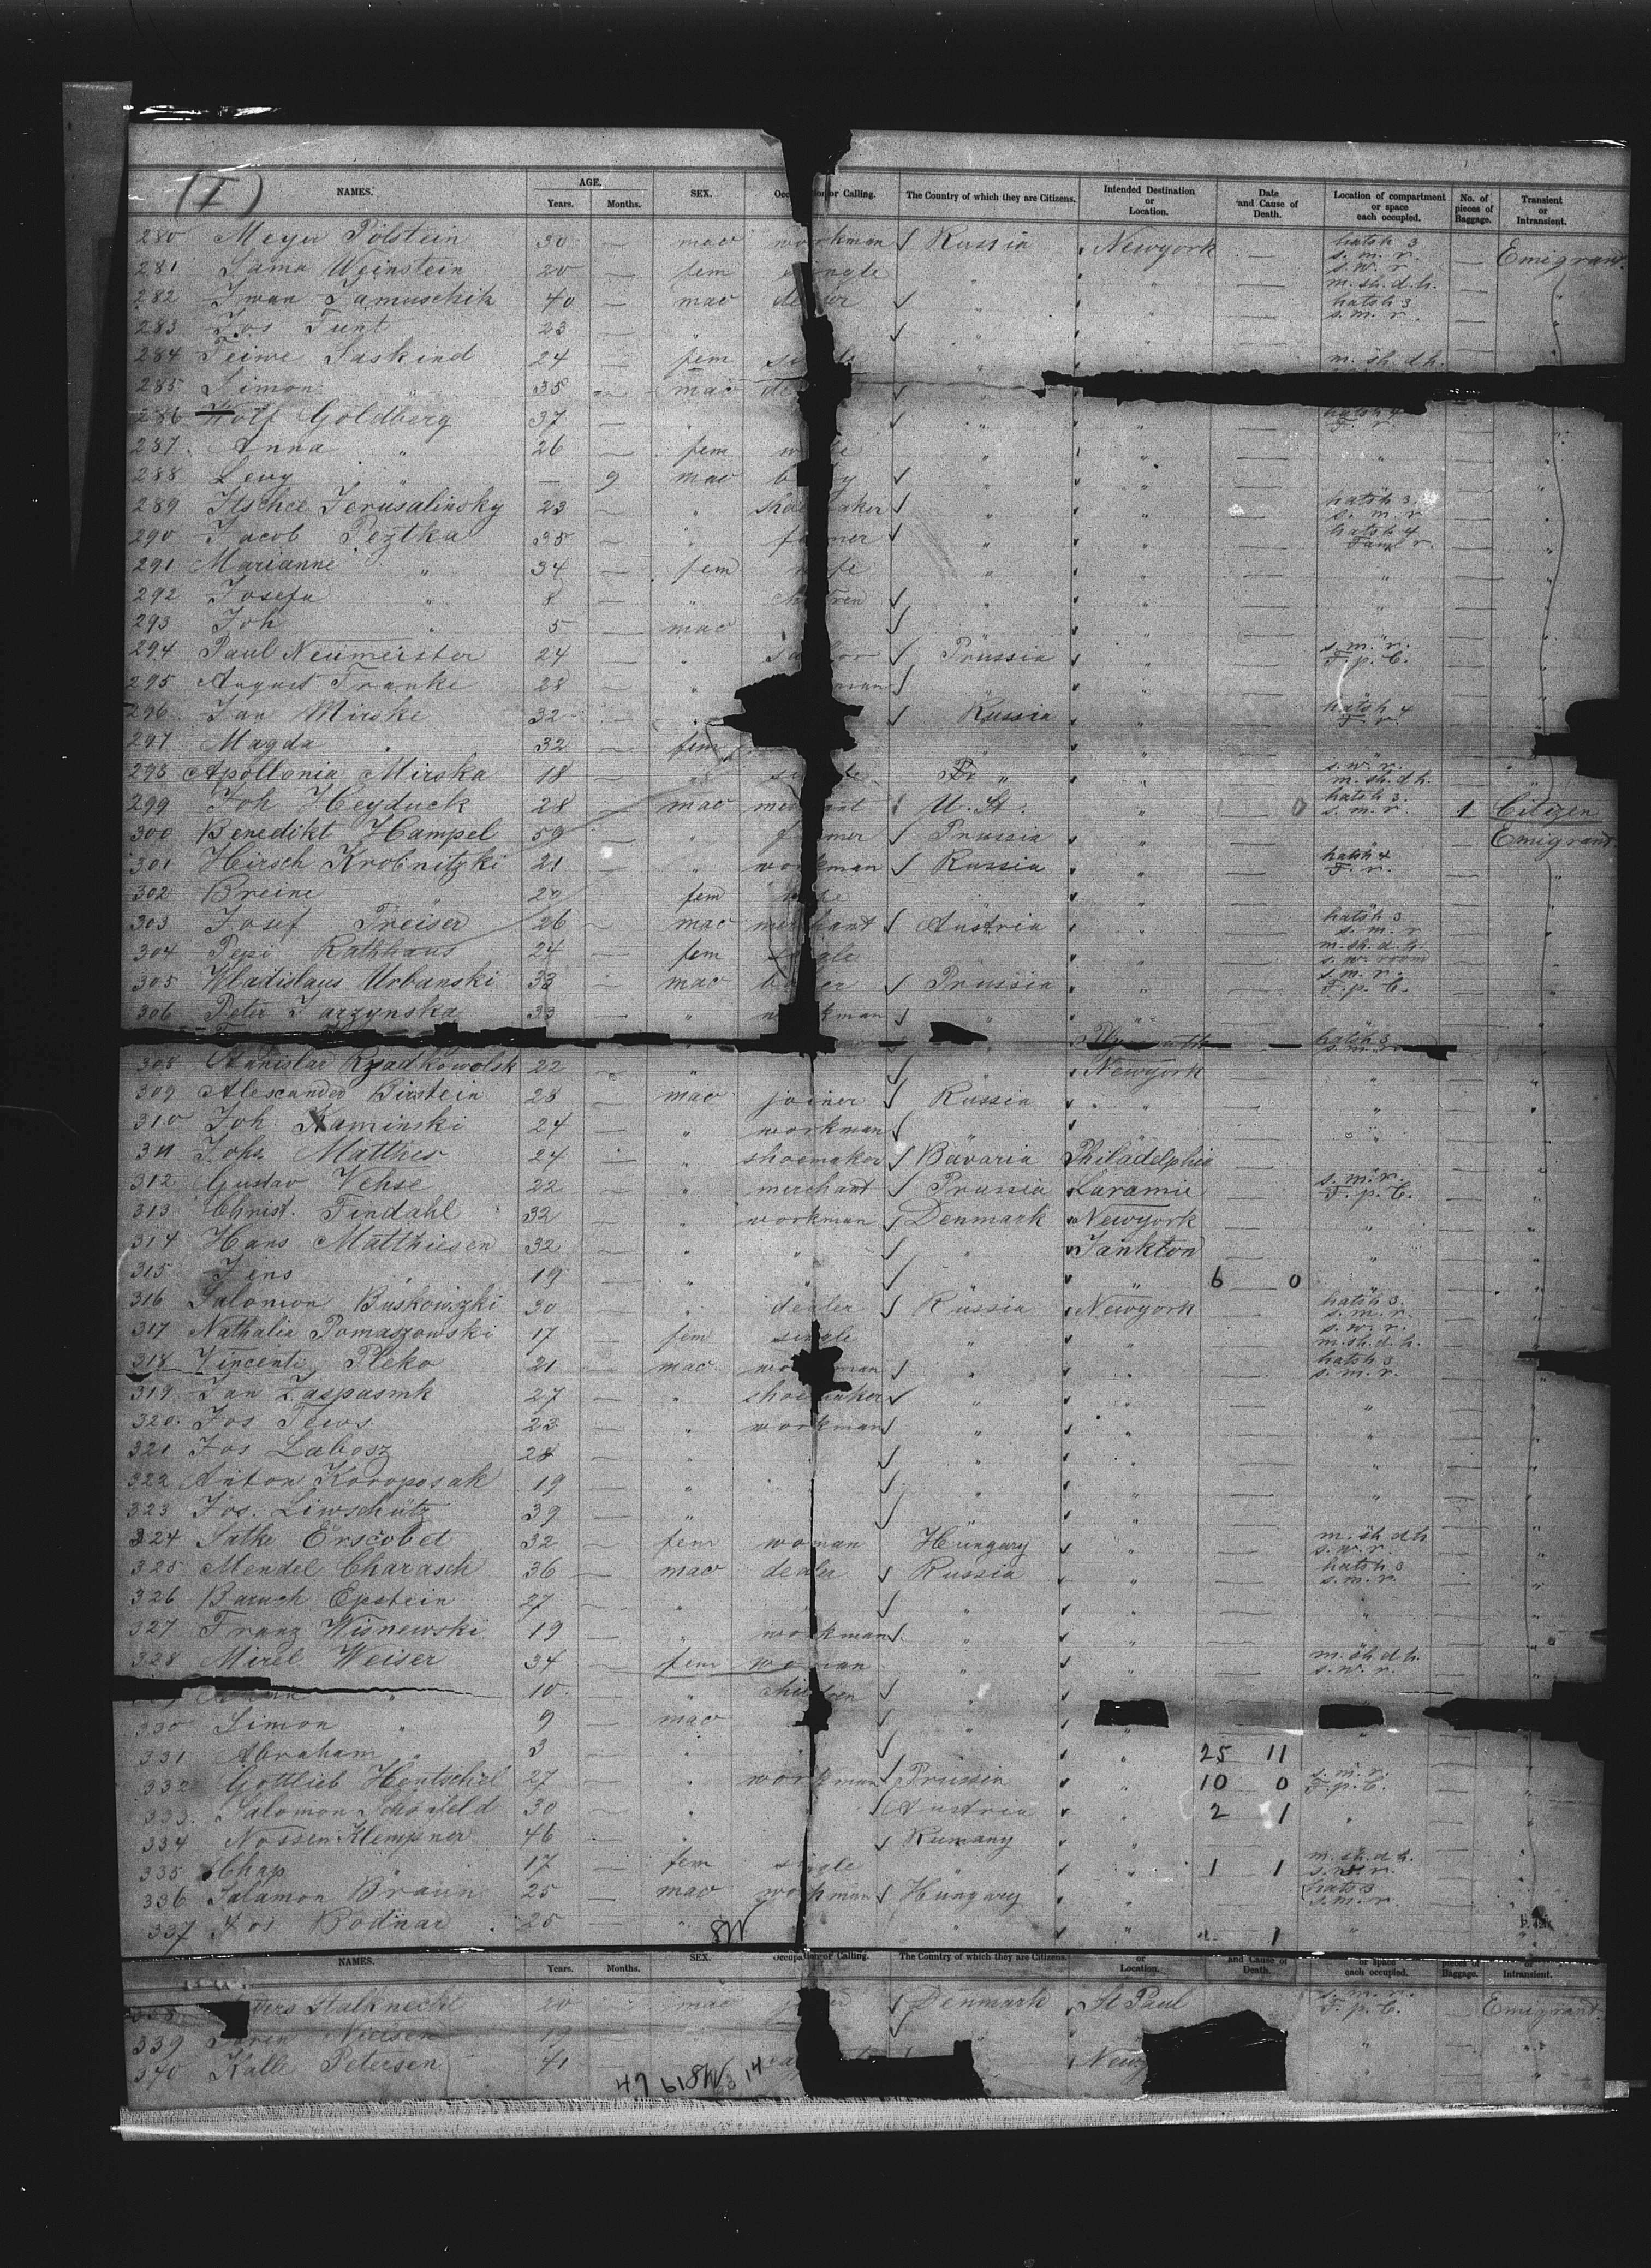 (I)
NAMES. AGE. Years. Months. SEX. Occupation or Calling. The Country of which they are Citizens. Intended Destination or Location. Date and Cause of Death. Location of compartment or space each occupied. No. of pieces of Baggage. Transient or Intransient.
280 Meyer Polstein 30 — mac workman Russia Newyork — hatch 3 s. m. r. — Emigrant.
281 Sama Weinstein 20 — fem single " " — s. w. r. m. sh. d. h. —
282 Iwan Jamuschik 40 — mac " " — hatch 3 s. m. r. —
283 Jos Funt 23 — " " " — —
284 Feiwe Saskind 24 — fem " " — m. sh. d. h. —
285 Simon " 35 — mac "
286 Wolf Goldberg 37 — " " " — hatch 4 F. r. —
287 Anna " 26 — fem wife " " — " —
288 Levy " — 9 mac " " — " —
289 Itschce Jerusalinsky 23 — " shoemaker " " — hatch 3 s. m. r. —
290 Jacob Peztka 35 — " farmer " " — hatch 4 Fam r. —
291 Marianne " 34 — fem wife " " — " —
292 Josefa " 8 — " children " " — " —
293 Joh " 5 — mac " " — " —
294 Paul Neumeister 24 — " Prussia " — s. m. r. F. p. C. —
295 August Franke 28 — " " " — " —
296 Jan Mirske 32 — " Russia " — hatch 4 F. r. —
297 Magda " 32 — fem " " — " —
298 Apollonia Mirska 18 — " single " " — s. w. r. m. sh. d. h. —
299 Joh Heyduck 28 — mac merchant U. St. " — 0 hatch 3. s. m. r. 1 Citizen
300 Benedikt Hampel 59 — " farmer Prussia " — " — Emigrant.
301 Hirsch Krobnitzki 21 — " workman Russia " — hatch 4 F. r. —
302 Breine " 20 — fem wife " " — " —
303 Josef Preiser 26 — mac merchant Austria " — hatch 3 s. m. r —
304 Pepi Rathhaus 24 — fem single " " — m. sh. d. h. s. w. room —
305 Wladislaus Urbanski 33 — mac Prussia " — s. m. r. F. p. C. —
306 Peter Jarzynska 33 — " workman " " — " —
hatch 3
308 Stanislav Rzadkowolsk 22 — " " Newyork — " —
309 Alexander Birstein 28 — mac joiner Russia " — " —
310 Joh Kaminski 24 — " workman " " — " —
311 Johs Matthes 24 — " shoemaker Bavaria Philadelphia — " —
312 Gustav Vehse 22 — " merchant Prussia Laramie — s. m. r. F. p. C. —
313 Christ. Findahl 32 — " workman Denmark Newyork — " —
314 Hans Matthiesen 32 — " " " Jankton — " —
315 Jens " 19 — " " " " 6 0 " —
316 Salomon Buskowizki 30 — " dealer Russia Newyork — hatch 3. s. m. r. —
317 Nathalia Pomaszowski 17 — fem single " " — s. w. r. m. sh. d. h. —
318 Vincenti Pleka 21 — mac workman " " — hatch 3 s. m. r. —
319 Jan Zaspasmk 27 — " shoemaker " " — " —
320 Jos Tews 23 — " workman " " — " —
321 Jos Labosz 28 — " " " " — " —
322 Anton Koroposak 19 — " " " " — " —
323 Jos. Liwschütz 39 — " " " " — " —
324 Salke Erscobet 32 — fem woman Hungary " — m. sh. d. h s. w. r. —
325 Mendel Charasch 36 — mac dealer Russia " — hatch 3 s. m. r. —
326 Baruch Epstein 27 — " " " " — " —
327 Franz Wisnewski 19 — " workman " " — " —
328 Mirel Weiser 34 — fem woman " " — m. sh. d. h. s. w. r. —
" 10 — " children " " —
330 Simon " 9 — mac " " " —
331 Abraham " 3 — " " " " 25 11 " —
332 Gottlieb Hentschel 27 — " workman Prussia " 10 0 s. m. r. F. p. C. —
333. Salomon Schonfeld 30 — " " Austria " 2 1 " —
334 Nossen Klempner 46 — " Rumany " — " —
335 Chap " 17 — fem single " " 1 1 m. sh. d. h. s. w. r. —
336 Salamon Braun 25 — mac workman Hungary " — hatch 3 s. m. r. —
337 Jos Bodnar 25 — " " " 1 " —
NAMES. Years. Months. SEX. Occupation or Calling. The Country of which they are Citizens. or Location. and Cause of Death. or space each occupied. Baggage. or Intransient.
338 Stalknecht 20 mac Denmark St Paul s. m. r. F. p. C. — Emigrant.
339 Soren Nielsen 19 — " " " —
340 Kalle Petersen 41 — " —